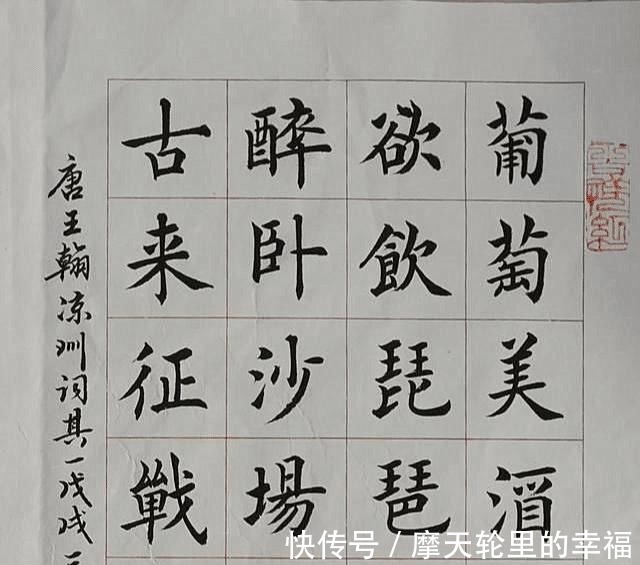 葡萄美酒
欲飲琵琶
醉卧沙場
古来征戰
唐王翰凉州词其一戊戌
快传号 / 摩天轮里的幸福